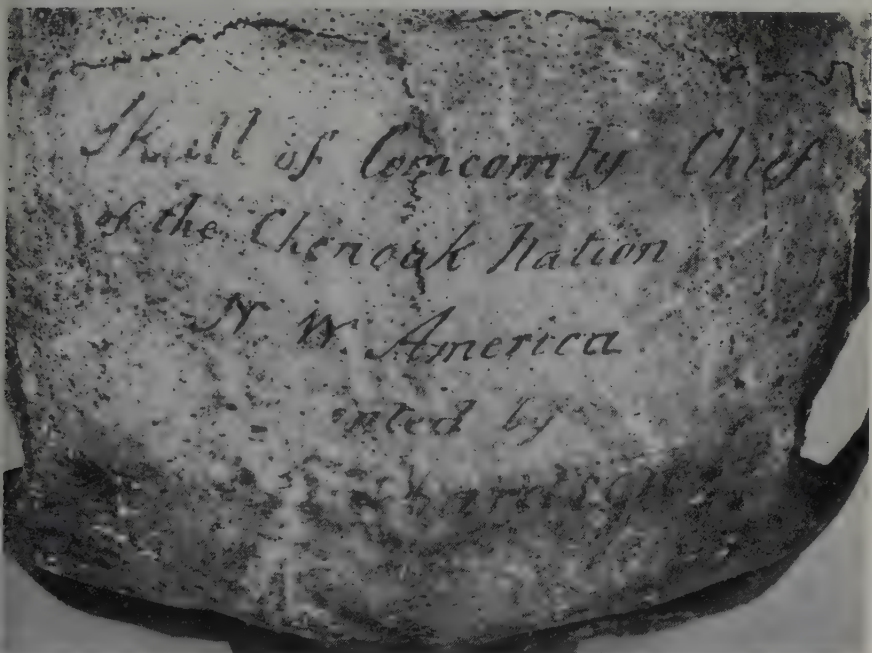 Skull of Comcomly Chief
of the Chenook Nation
N W. America
nted by